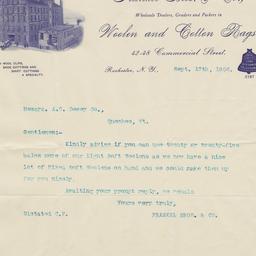 Frankel Bros. & Co.,
Wholesale Dealers, Graders and Packers in
Woolen and Cotton Rags
42-48 Commercial Street.
WOOL CLIPS,
SHOE CUTTINGS AND
SHIRT CUTTINGS
A SPECIALTY.
Rochester, N. Y., Sept. 17th, 1906.
Messrs. A.G. Dewey Co.,
Quechee, Vt.
Gentlemen:-
Kindly advise if you can use twenty or twenty-five
bales more of our Light Soft Woolens as we now have a nice
lot of Mixed Soft Woolens on hand and we could make them up
for you nicely.
Awaiting your prompt reply, we remain
Yours very truly,
Dictated C.F. FRANKEL BROS. & CO.